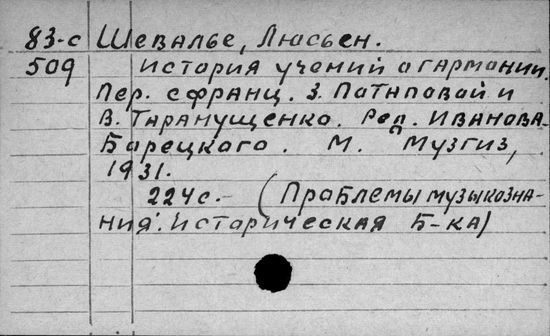 83-с Шевалье, Люсьен.
509 История учений о гармонии.
Пер. с франц. З. Потаповой и
В. Таранущенко. Ред. Иванова-
Борецкого. М. Музгиз,
1931.
224с.- (Проблемы музыкозна-
ния: Историческая Б-ка)